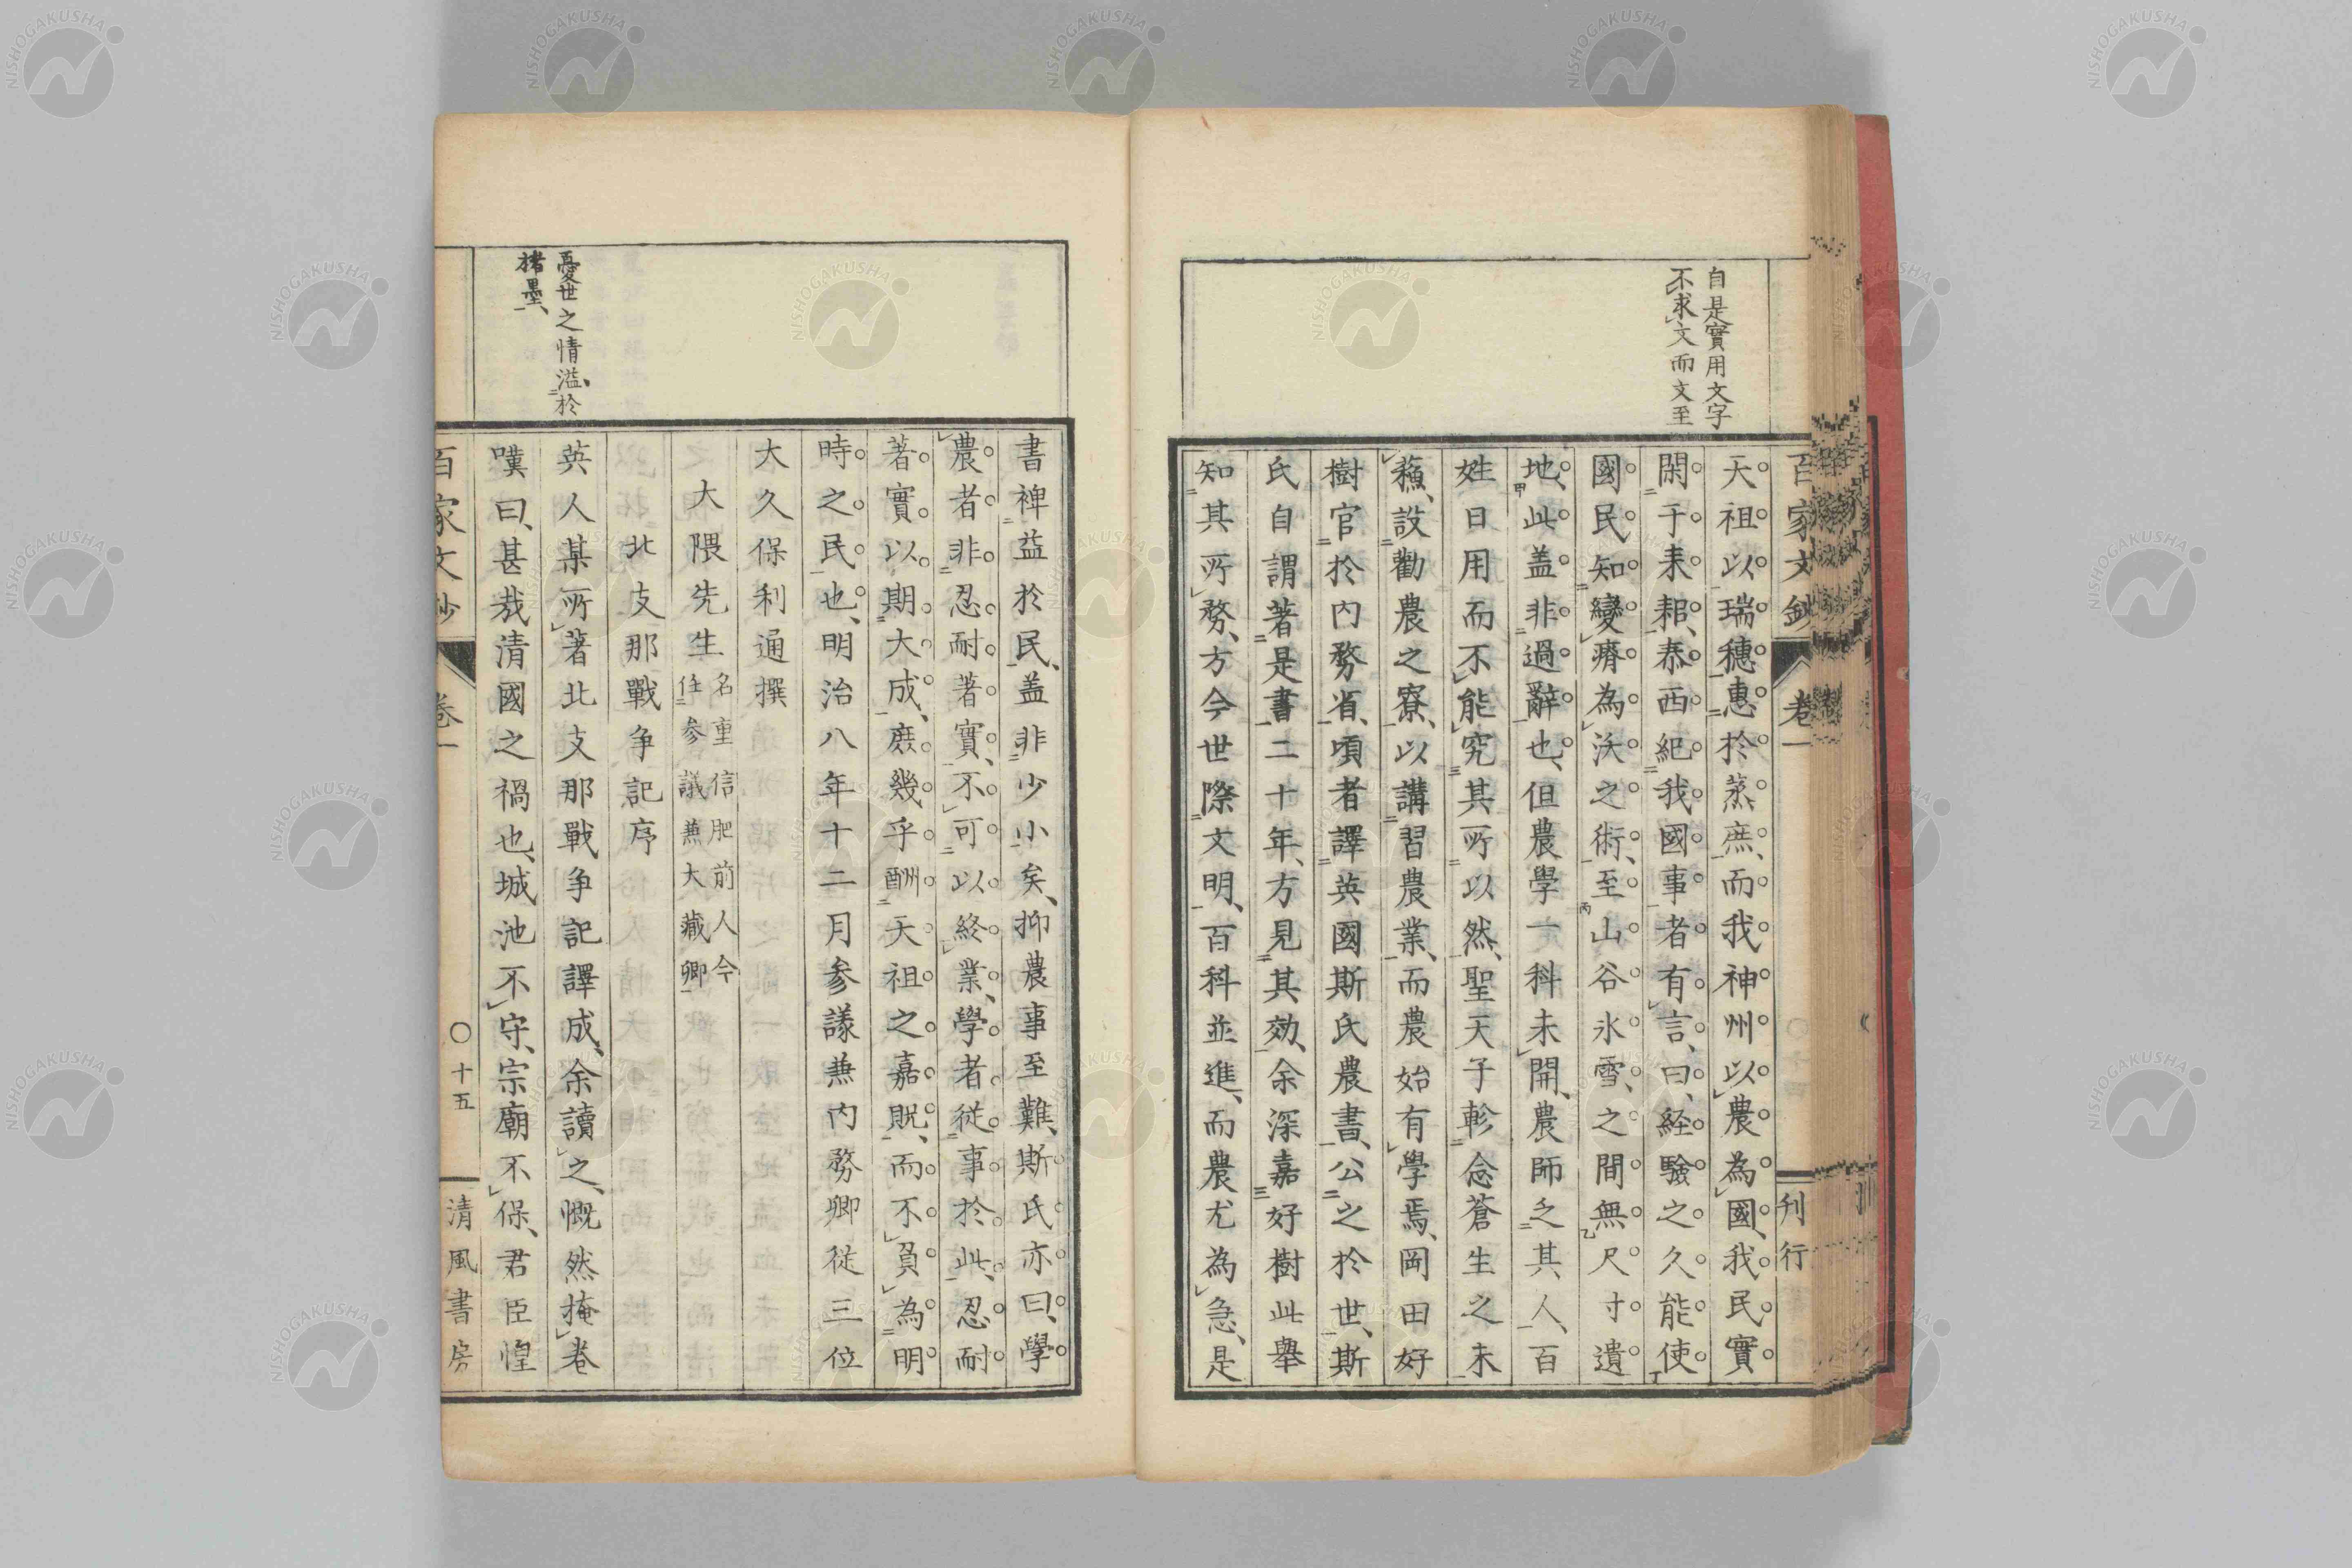 自是實用文字
不求文而文至
百家文鈔
卷一
刊行
天祖以瑞穗惠於蒸庶、而我神州以農為國、我民實
閑于耒耜、泰西紀我國事者有言、曰、経驗之久能使
國民知變瘠為沃之術、至山谷氷雪之間無尺寸遺
地、此盖非過辭也、但農學一科未開、農師乏其人、百
姓日用而不能究其所以然、聖天子軫念蒼生之未
蘓、設勸農之寮、以講習農業、而農始有學焉、岡田好
樹官於內務省、頃者譯英國斯氏農書、公之於世、斯
氏自謂著是書二十年、方見其効、余深嘉好樹此舉
知其所務、方今世際文明、百科並進、而農尤為急、是
書裨益於民、盖非少小矣、抑農事至難、斯氏亦曰、學
農者非忍耐著實、不可以終業、學者從事於此、忍耐
著實以期大成、庶幾乎酬天祖之嘉貺、而不負為明
時之民也、明治八年十二月参議兼內務卿從三位
大久保利通撰
大隈先生 名重信肥前人今任参議兼大藏卿
北支那戰争記序
英人某所著北支那戰争記譯成、余讀之、慨然掩卷
嘆曰、甚哉清國之禍也、城池不守、宗廟不保、君臣惶
憂世之情溢於
楮墨、
百家文鈔
卷一
〇十五
清風書房
NISHOGAKUSHA